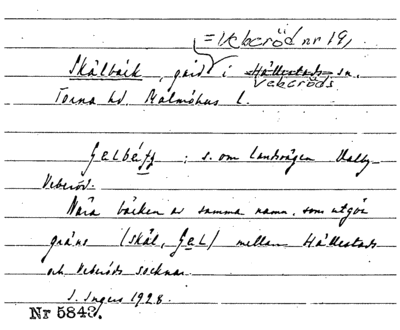 = Veberöd nr 19,
Skälbäck, gård i Hällestads sn.
Veberöds
Torna hd. Malmöhus l.
: s. om landsvägen Dalby
Veberöd.
Nära bäcken av samma namn, som utgör
gräns (skäl, ) mellan Hällestads
och Veberöds socknar.
I. Ingers 1928.
Nr 5843.